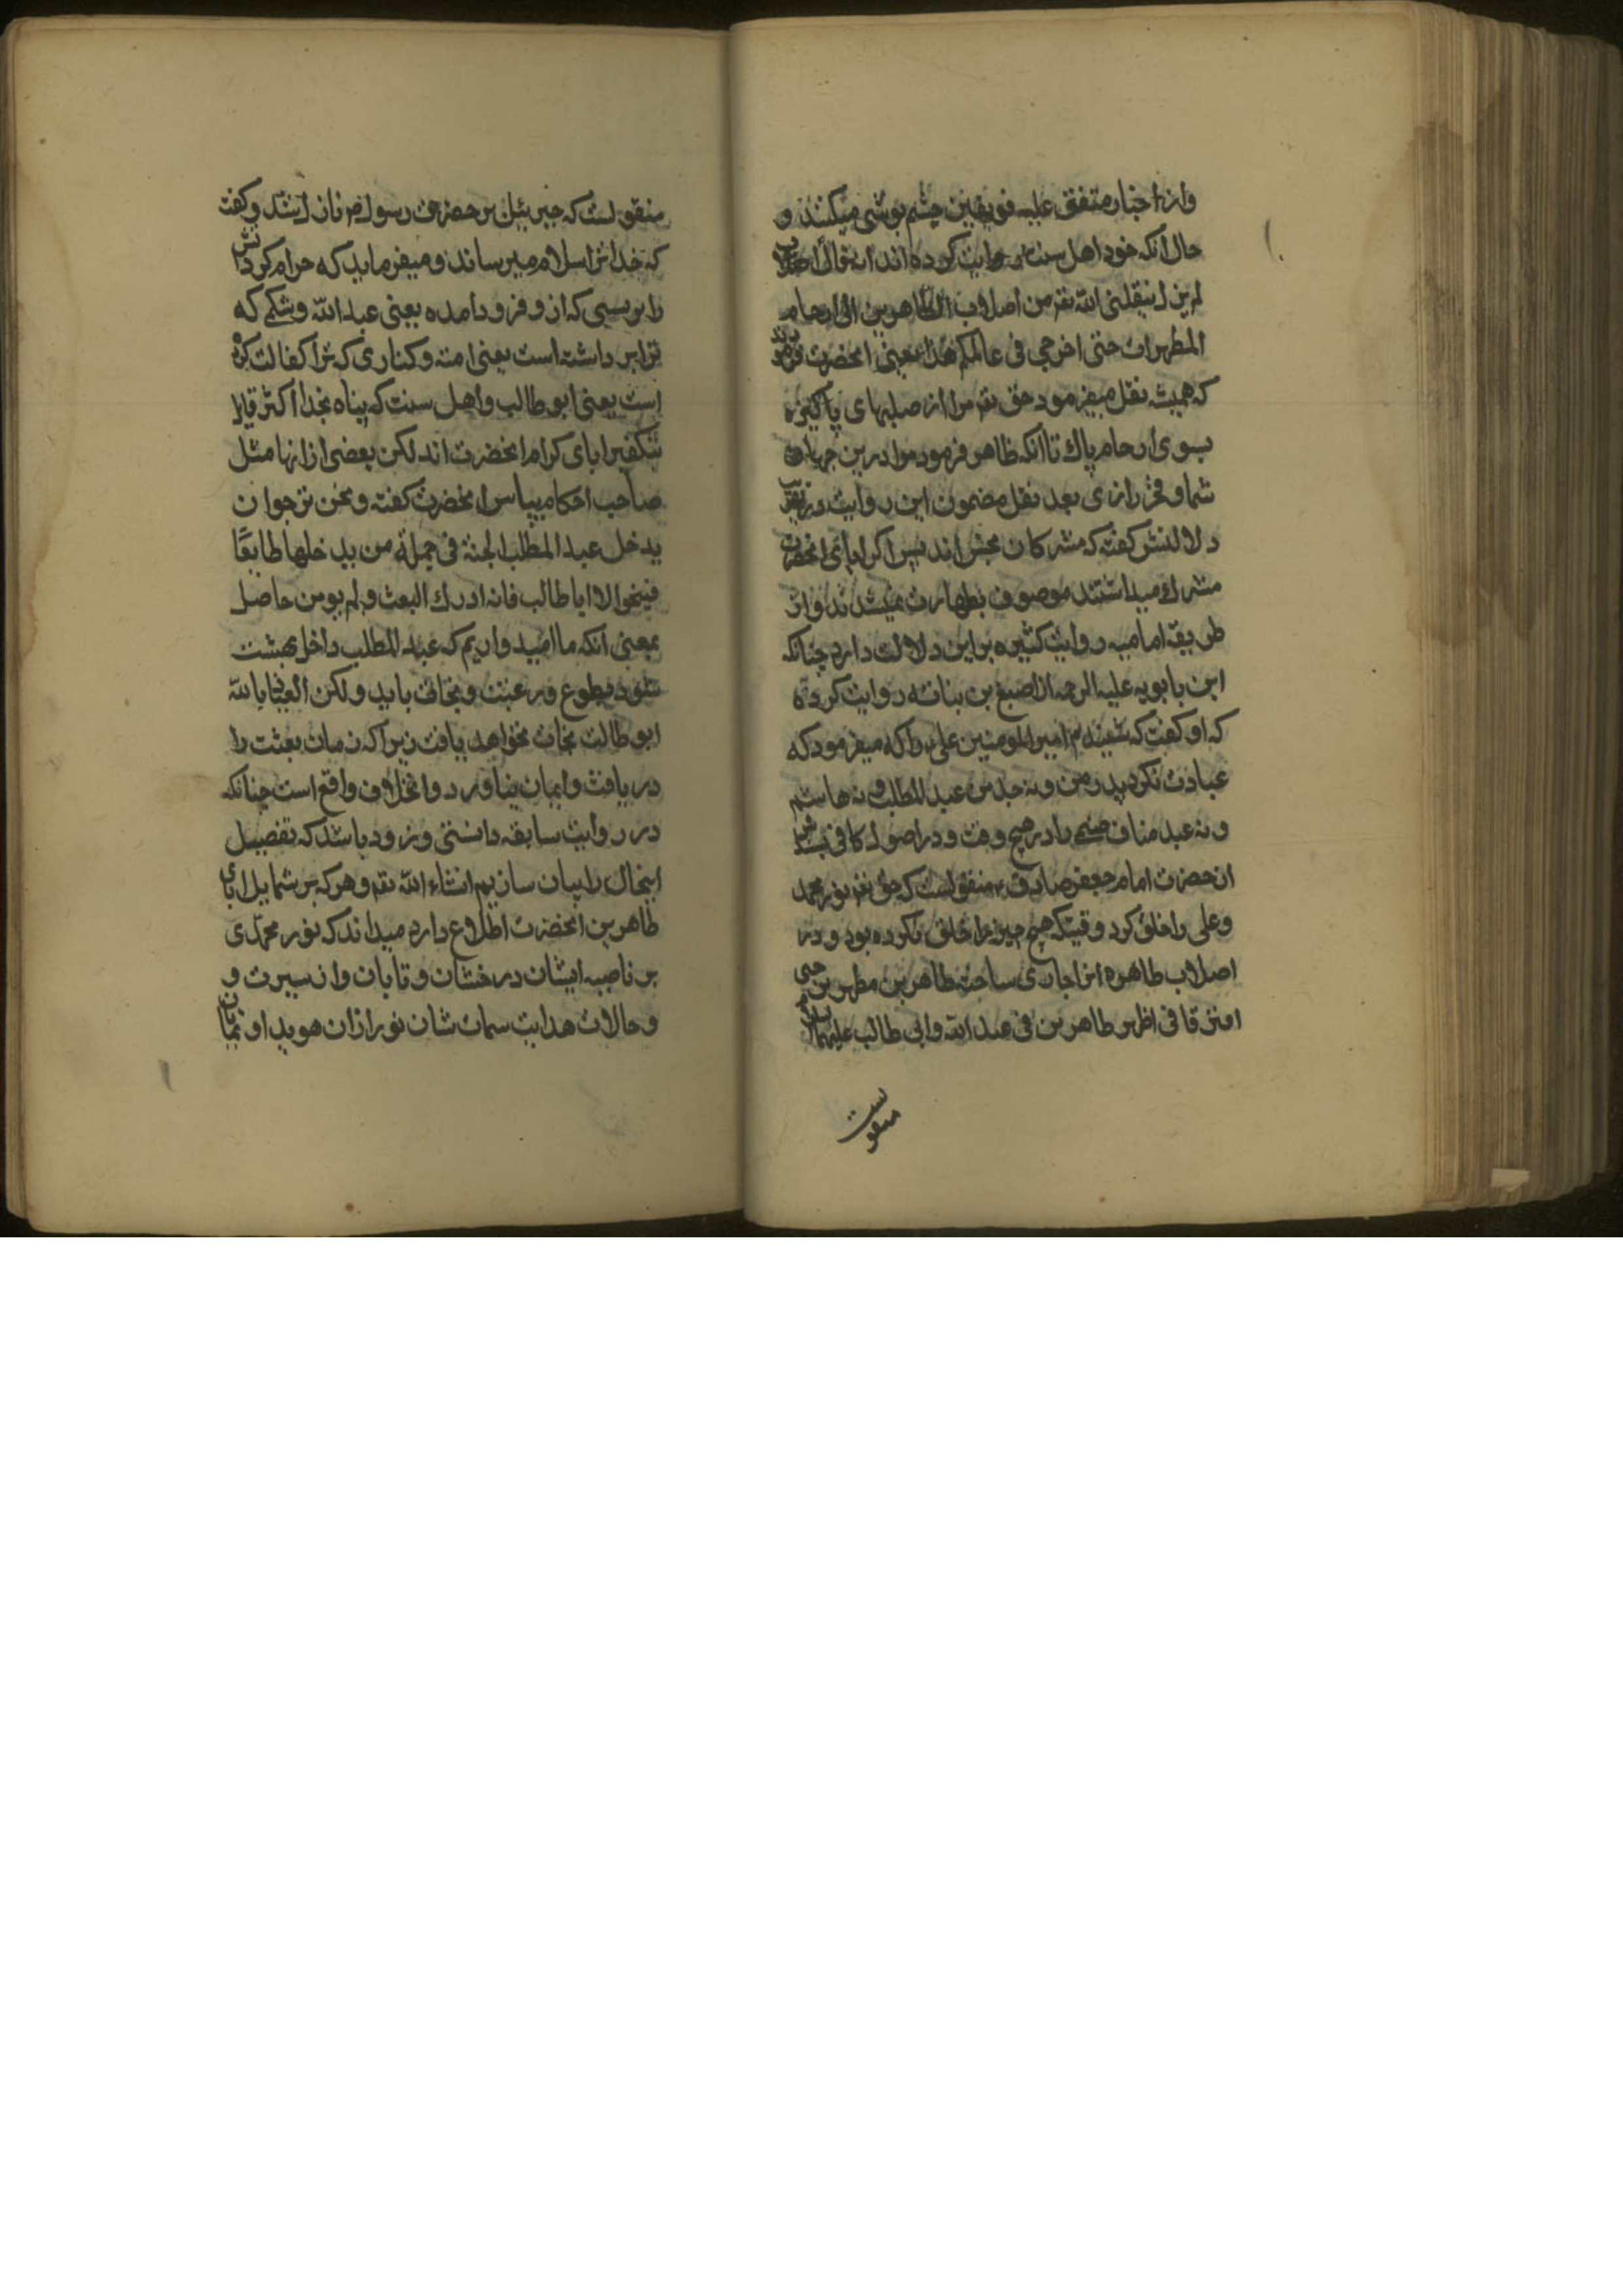 واز اخبار متفق علیه فریقین چشم پوشی میکنند و
حال انکه خود اهل سنت روایت کرده اند ان
لم یزل ینقلنی الله تعم من اصلاب الطاهرین الی ارحام
المطهرات حتی اخرجی فی عالمکم هذا یعنی انحضرت فرمود
که همیشه نقل میفرمود حق تعم مرا از صلبهای پاکیزه
بسوی ارحام پاك تا انکه ظاهر فرمود مرا درین جهان
شما و فخر رازی بعد نقل مضمون این روایت در تقریب
دلالتش کفته که مشرکان نجس اند پس اکر ابای انحضرت
مشرك میداشتند موصوف بطهارت نمیشدند و از
طریقه امامیه روایت کثیره براین دلالت دارد چنانکه
ابن بابویه علیه الرحمه از اصبغ بن بناته روایت کرده
که او کفت که شنیدم امیر المومنین علی را که میفرمود که
عبادت نکرد پدر من و نه جد من عبد المطلب و نه هاشم
و نه عبد مناف صنمی را در هیچ وقت و در اصول کافی
از حضرت امام جعفر صادق ع منقولست که حق تعم نور محمد
و علی را خلق کرد وقتیکه هیچ چیز را خلق نکرده بود و در
اصلاب طاهره انرا جاری ساخت طاهرین مطهرین حتی
افترقا فی اطهر طاهرین فی عبد الله وابی طالب علیهما السلام
منقولست
منقولست که جبرئیل بر حضرت رسول ص نازل شد و کفت
که خدا ترا سلام میرساند و میفرماید که حرام کرد اتش
را بر پسی که از و فرود امده یعنی عبد الله و شکمی که
ترا بر داشته است یعنی امنه و کناری که ترا کفالت کرده
است یعنی ابو طالب و اهل سنت که پناه بخدا اکثر قایل
بتکفیر ابای کرام انحضرت اند لکن بعضی از انها مثل
صاحب احکام بپاس انحضرت کفته و نحن نرجوا ن
یدخل عبد المطلب الجنة فی جملة من یدخلها طایعًا
فینجوا الا ابا طالب فانه ادرك البعث و لم یومن حاصل
بمعنی انکه ما امید واریم که عبد المطلب داخل بهشت
شود بطوع و رغبت و نجات یابد و لکن العیاذ بالله
ابو طالب نجات نخواهد یافت زیرا که زمان بعثت را
دریافت و ایمان نیاورد و اینخلاف واقع است چنانکه
در روایت سابقه دانستی و زود باشد که تفصیل
اینحال را بیان سازیم انشاء الله تعم و هر که بر شمایل ابای
طاهرین انحضرت اطلاع دارد میداند که نور محمدی
بر ناصیه ایشان درخشان و تابان و از سیرت و
و حالات هدایت سمات شان نور ازان هویدا و نمایان